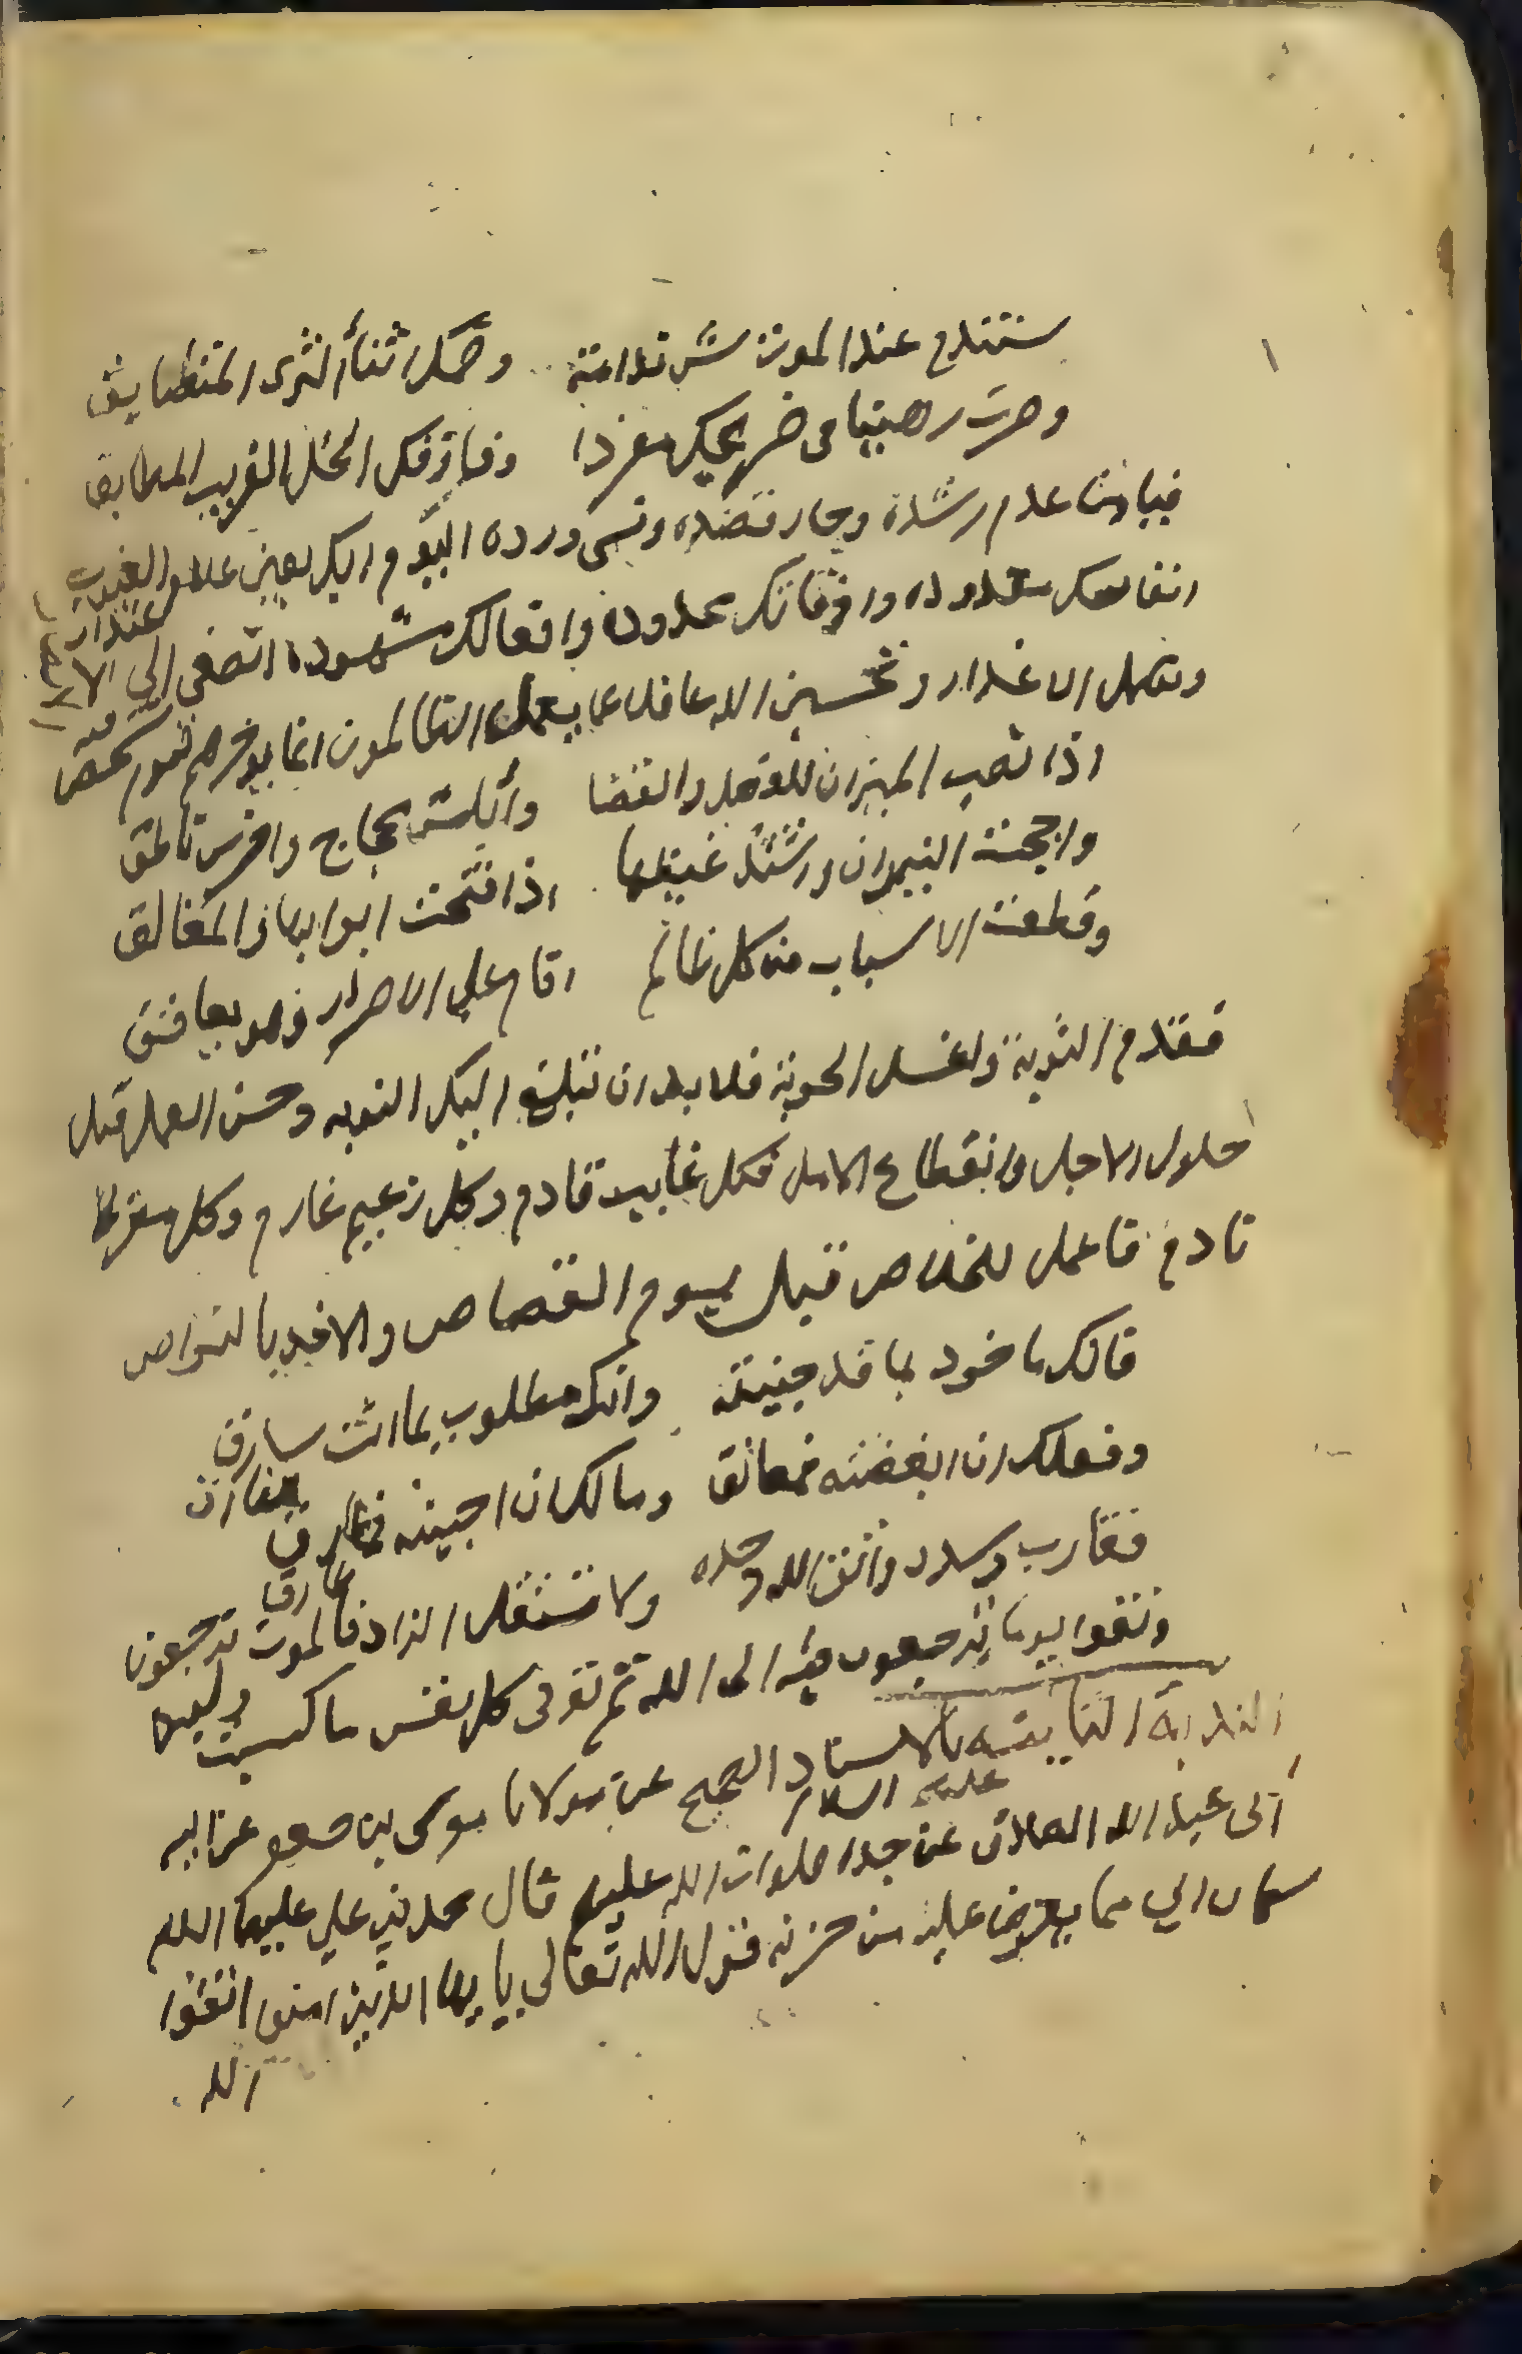 ستندم عند الموت شر ندامة وضمك اثناء الثرى المتضايق
وصرت رهينا في ضريحك مفردا وفارقك الخل القريب المطابق
فيامن عدم رشده وجار قصده ونسي ورده اليوم اليك يعين علام الغيوب
انفاسك معدوده واوقاتك محدوده وافعالك مشهوده اتصغى الى الاعتذار
وتهمل الاعذار وتحسبن الله غافلا عما يعمل الظالمون انما يوخرهم ليوم تشخص فيه
اذا نصب الميزان للفصل والقضا وابلس محجاج واخرس ناطق
واججت النيران واشتد غيظها اذا فتحت ابوابها والمغالق
وقطعت الاسباب من كل ظالم اقام على الاصرار وهو ينافق
فقدم التوبة واغسل الحوبة فلا بد ان تبلغ اليك النوبه وحسن العمل قبل
حلول الاجل وانقطاع الامل فكل غايب قادم وكل زعيم غارم وكل مفرط
نادم فاعمل للخلاص قبل يوم القصاص والاخذ بالنواص
فانك ماخود بما قد جنيته وانك مطلوب بما انت سارق
وفعلك ان ابغضته فمعانق ومالك ان احببته فمفارق
فقارب وسدد واتق الله وحده ولا تستقل الزاد فالموت طارق
وتقوا يوما ترجعون فيه الى الله ثم توفى كل نفس ما كسبت
الندبة الثانية بالاسناد الصحيح عن مولانا موسى بن جعفر عن ابيه
ابي عبد الله الصادق عن جده صلوات الله عليهم قال محمد بن علي عليهما السلام
كان ابي مما يعرض عليه من حزنه قول الله تعالى يا ايها الذين امنوا اتقوا
الله